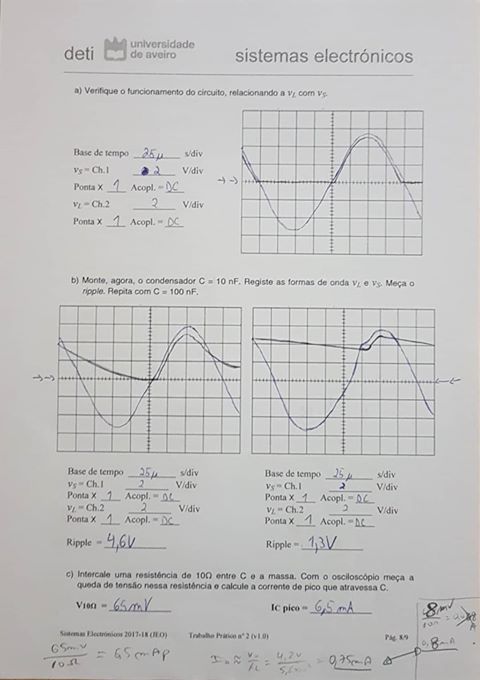 deti universidade de aveiro sistemas electrónicos
a) Verifique o funcionamento do circuito, relacionando a vL com vS.
Base de tempo 25µ s/div
vS = Ch.1 2 V/div
Ponta X 1 Acopl. = DC
vL = Ch.2 2 V/div
Ponta X 1 Acopl. = DC
b) Monte, agora, o condensador C = 10 nF. Registe as formas de onda vL e vS. Meça o
ripple. Repita com C = 100 nF.
Base de tempo 25µ s/div
vS = Ch.1 2 V/div
Ponta X 1 Acopl. = DC
vL = Ch.2 2 V/div
Ponta X 1 Acopl. = DC
Ripple = 4,6V
Base de tempo 25µ s/div
vS = Ch.1 2 V/div
Ponta X 1 Acopl. = DC
vL = Ch.2 2 V/div
Ponta X 1 Acopl. = DC
Ripple = 1,3V
c) Intercale uma resistência de 10Ω entre C e a massa. Com o osciloscópio meça a
queda de tensão nessa resistência e calcule a corrente de pico que atravessa C.
V10Ω = 65mV IC pico = 6,5mA
Sistemas Electrónicos 2017-18 (JEO) Trabalho Prático nº 2 (v1.0) Pág. 8/9
8mV
0,8mA
65mV / 10Ω = 6,5mAp
= 0,75mA